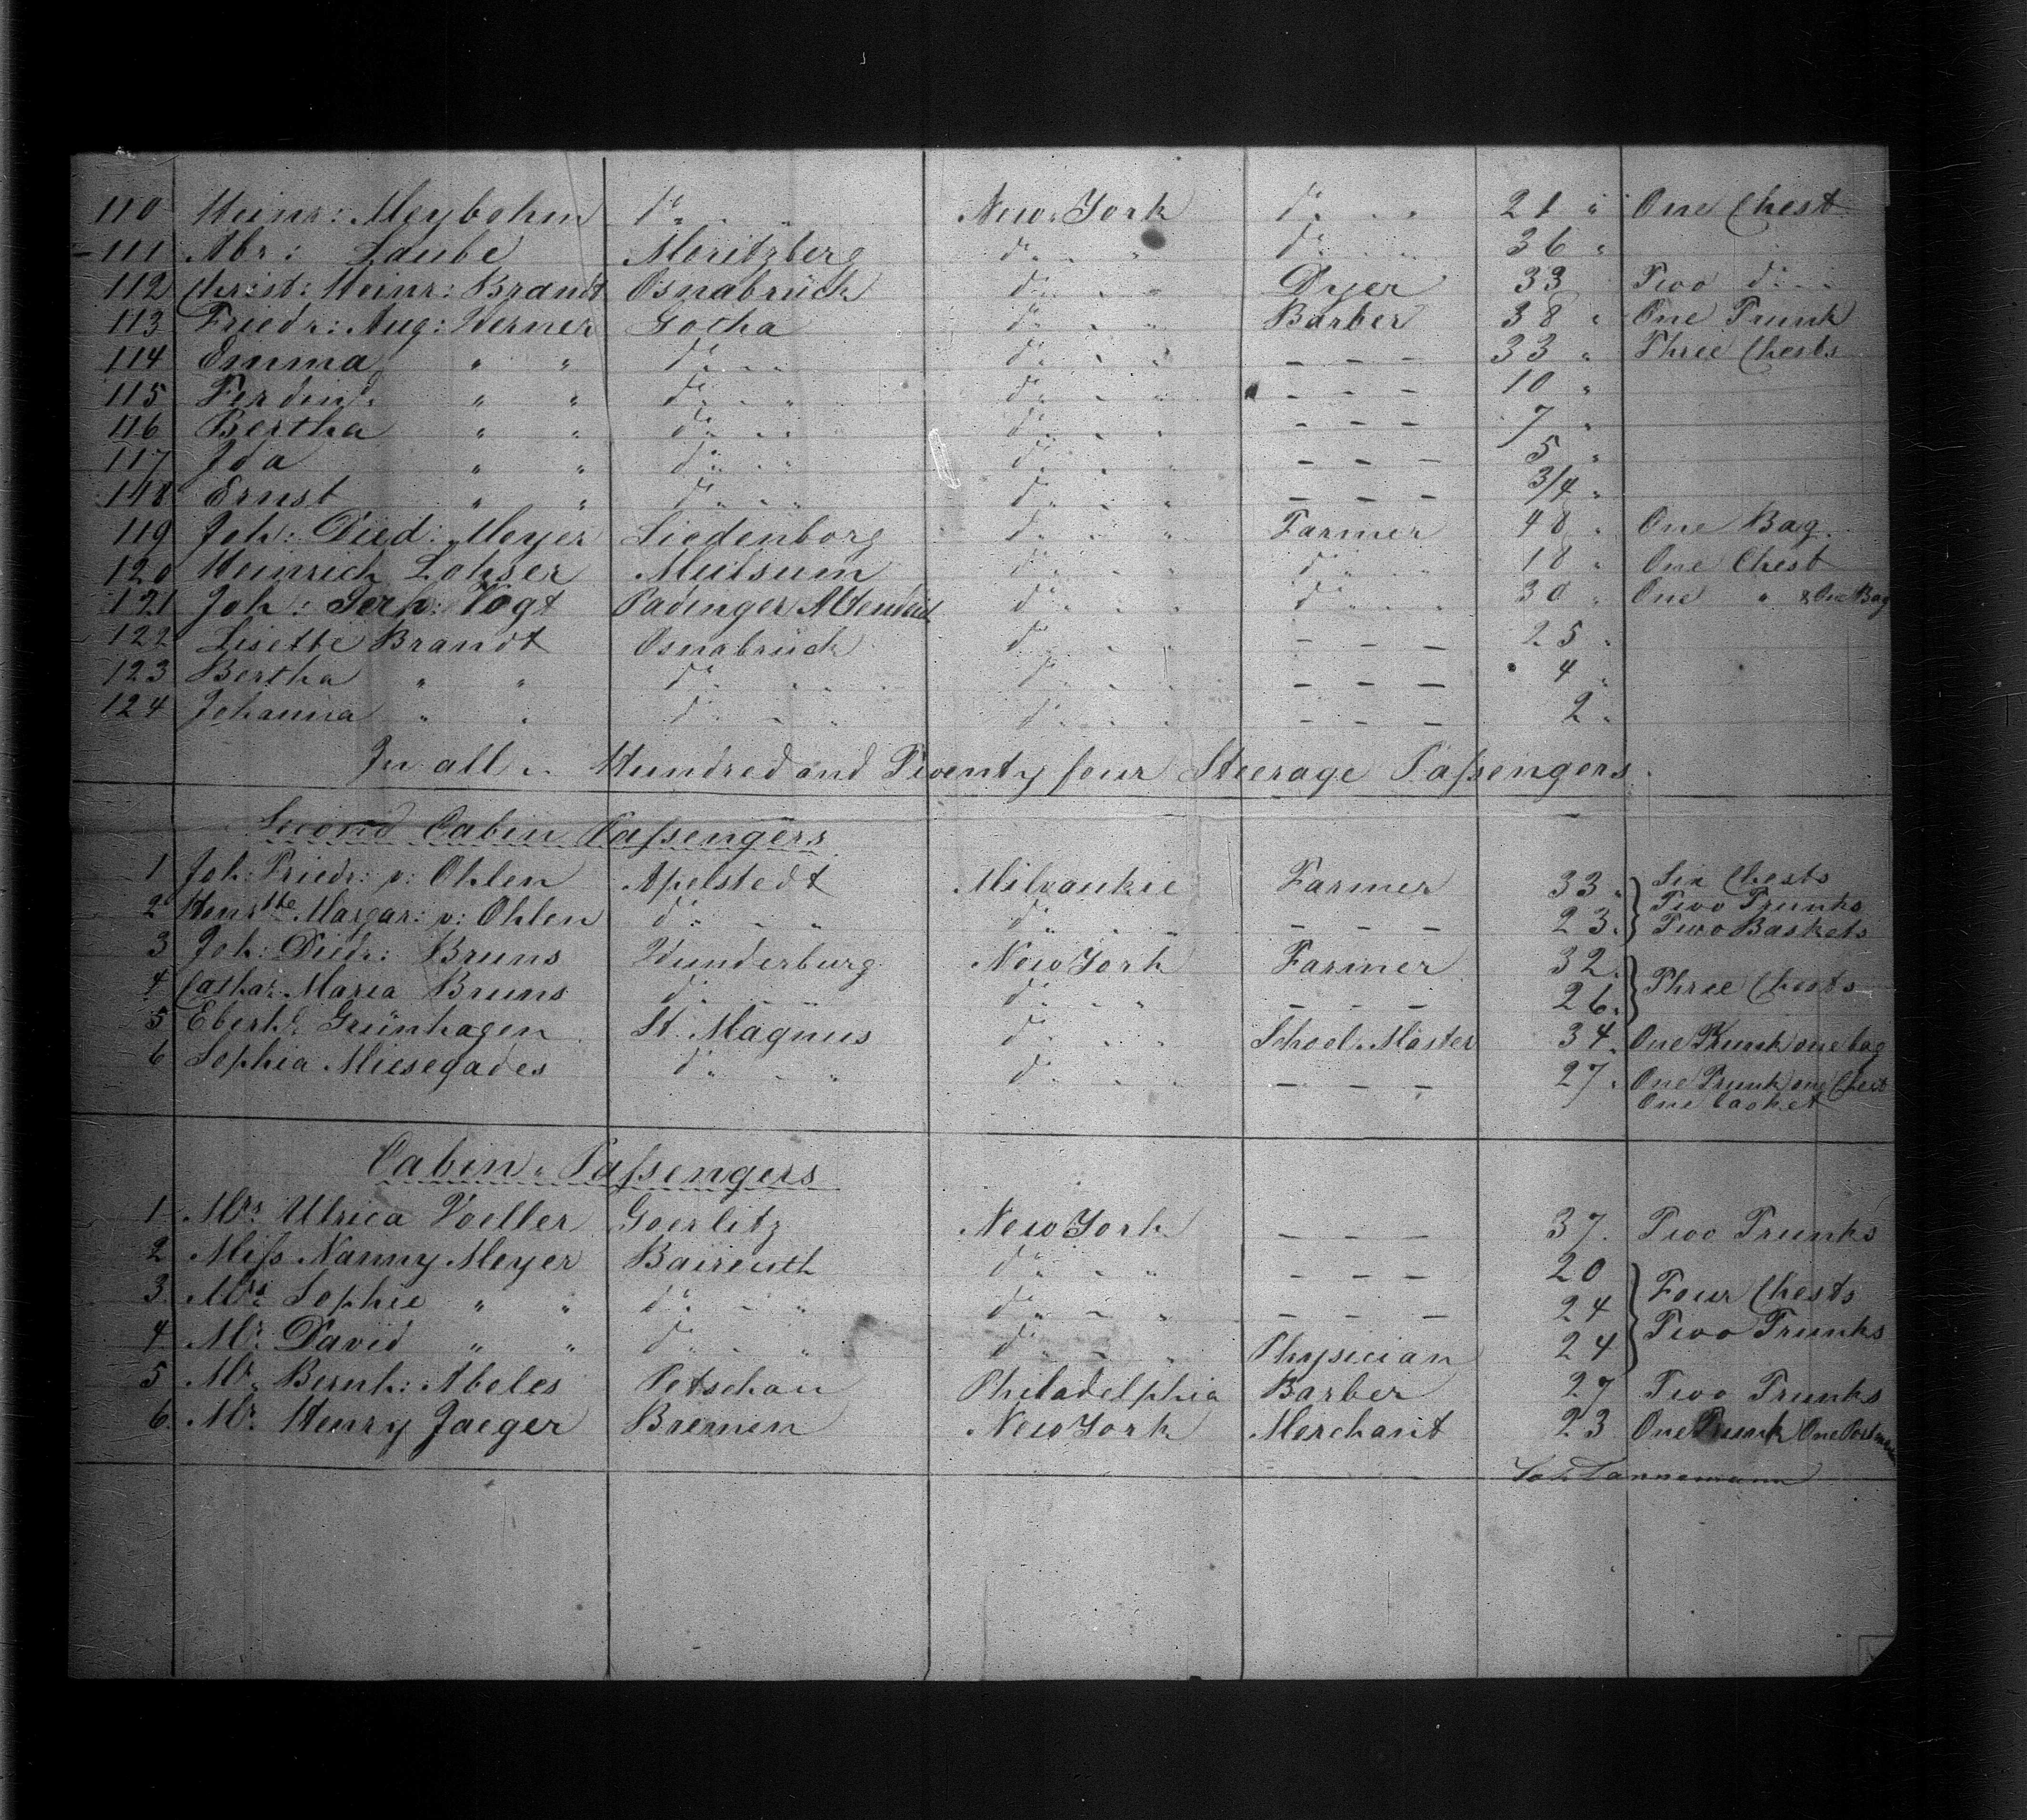 110 Heinr: Meybohm do " " New York do " " 21 " One Chest
111 Abr: Laube Moritzberg do " " do " " 36 "
112 Christ: Heinr: Brandt Osnabrück do " " Dyer 33 Two do " "
113 Friedr: Aug: Werner Gotha do " " Barber 38 " One Trunk
114 Emma " " do " " do " " – – – 33 " Three Chests
115 Ferdind: " " do " " do " " – – – 10 "
116 Bertha " " do " " do " " – – – 7 "
117 Ida " " do " " do " " – – – 5 "
118 Ernst " " do " " do " " – – – 3/4 "
119 Joh: Died: Meyer Siedenborg do " " Farmer 48 " One Bag.
120 Heinrich Lohser Mulsum do " " do " " 18 " One Chest
121 Joh: Vogt Padinger do " " do " " 30 " One " & One Bag
122 Lisette Brandt Osnabrück do " " – – – 25 "
123 Bertha " " do " " do " " – – – 4 "
124 Johanna " " do " " do " " – – – 2 "
In all " Hundred and Twenty four Steerage Passengers.
Second Cabin Passengers
1 Joh: Friedr: v: Ohlen Apelstedt Milvaukie Farmer 33 " Six Chests
Two Trunks
2 Henrtte Margar: v: Ohlen do " " do " " – – – 23 " Two Baskets
3 Joh: Diedr: Bruns Wunderburg New York Farmer 32 "
Three Chests
4 Cathar: Maria Bruns do " " do " " – – – 26 "
5 Eberhd: Grünhagen St. Magnus do " " School Master 34 " One Trunk one bag
6 Sophia Miesegades do " " do " " – – – 27 " One Trunk one Chest
One basket
Cabin " Passengers
1. Mrs Ulrica Voeller Goerlitz New York – – – 37. Two Trunks
2 Miss Nanny Meyer Baireuth do " " – – – 20
3. Mrs Sophie " " do " " do " " – – – 24 Four Chests
4. Mr David " " do " " do " " Physician 24 Two Trunks
5 Mr Bernh: Abeles Petschau Philadelphia Barber 27 Two Trunks
6. Mr Henry Jaeger Bremen New York Merchant 23 One Trunk One